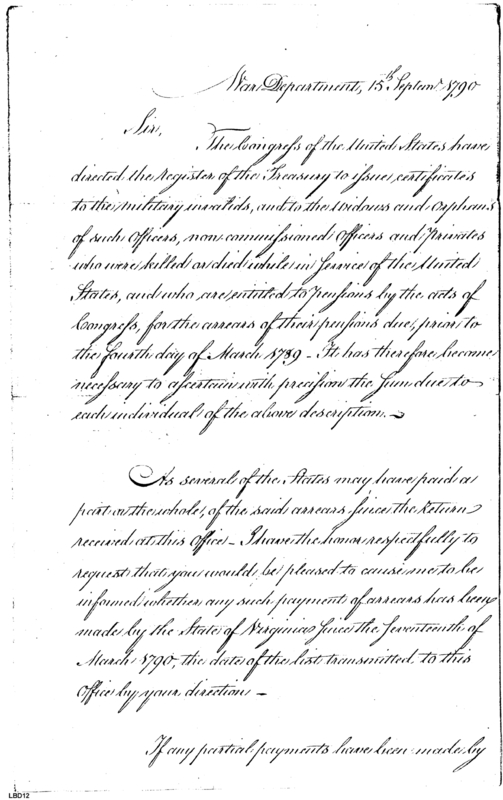 War Department, 15th Septemr 1790
Sir,
The Congress of the United States have
directed the Register of the Treasury to issue certificates
to the military invalids, and to the widows and orphans
of such officers, non commissioned officers and Privates
who were killed or died while in service of the United
States, and who are entitled to pensions by the acts of
Congress, for the arrears of their pensions due, prior to
the fourth day of March 1789 - It has therefore become
necessary to ascertain with precision the Sum due to
each individual of the above description. -
As several of the States may have paid a
part or the whole, of the said arrears since the Return
received at this Office - I have the honor respectfully to
request that you would be pleased to cause me to be
informed whether any such payment of arrears has been
made by the State of Virginia since the Seventeenth of
March 1790, the date of the list transmitted to this
Office by your direction -
If any partial payments have been made by
LBD12